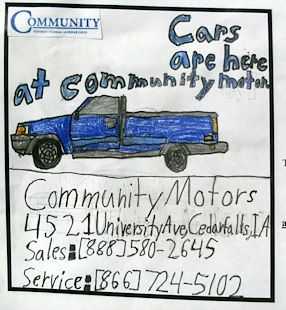 COMMUNITY
Cars
are here
at community motor
Community Motors
4521 University Ave, Cedarfalls, IA
Sales: [888] 580-2645
Service: [866] 724-5102